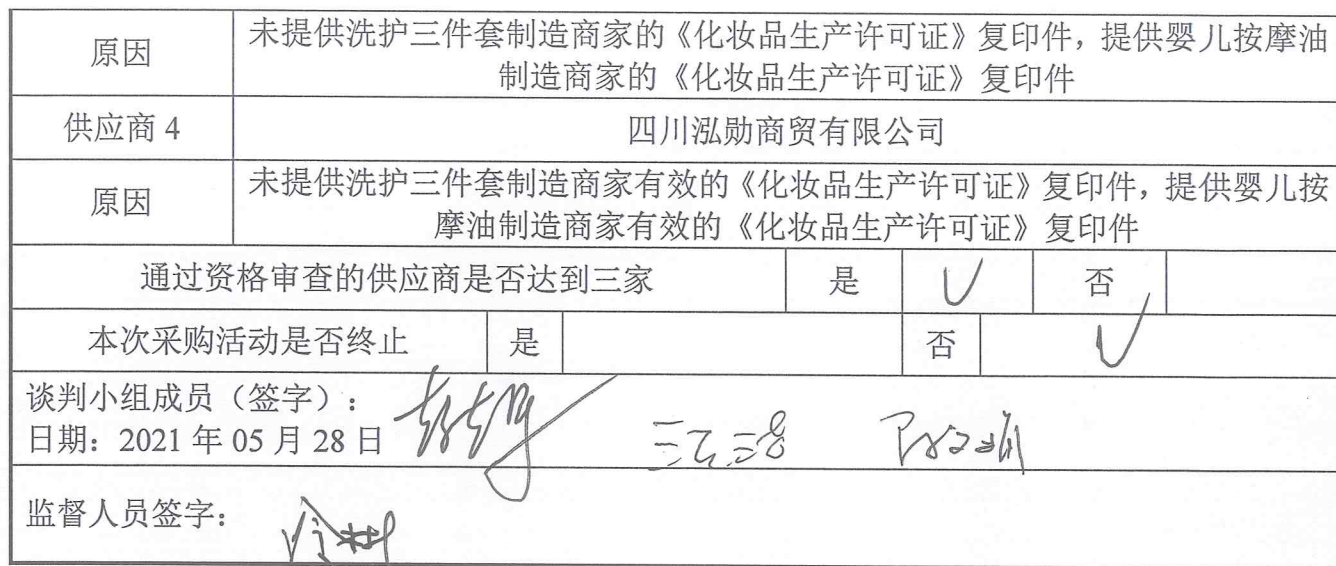 原因 未提供洗护三件套制造商家的《化妆品生产许可证》复印件，提供婴儿按摩油
制造商家的《化妆品生产许可证》复印件
供应商 4 四川泓勋商贸有限公司
原因 未提供洗护三件套制造商家有效的《化妆品生产许可证》复印件，提供婴儿按
摩油制造商家有效的《化妆品生产许可证》复印件
通过资格审查的供应商是否达到三家 是 √ 否
本次采购活动是否终止 是 否 √
谈判小组成员（签字）：
日期：2021 年 05 月 28 日
监督人员签字：